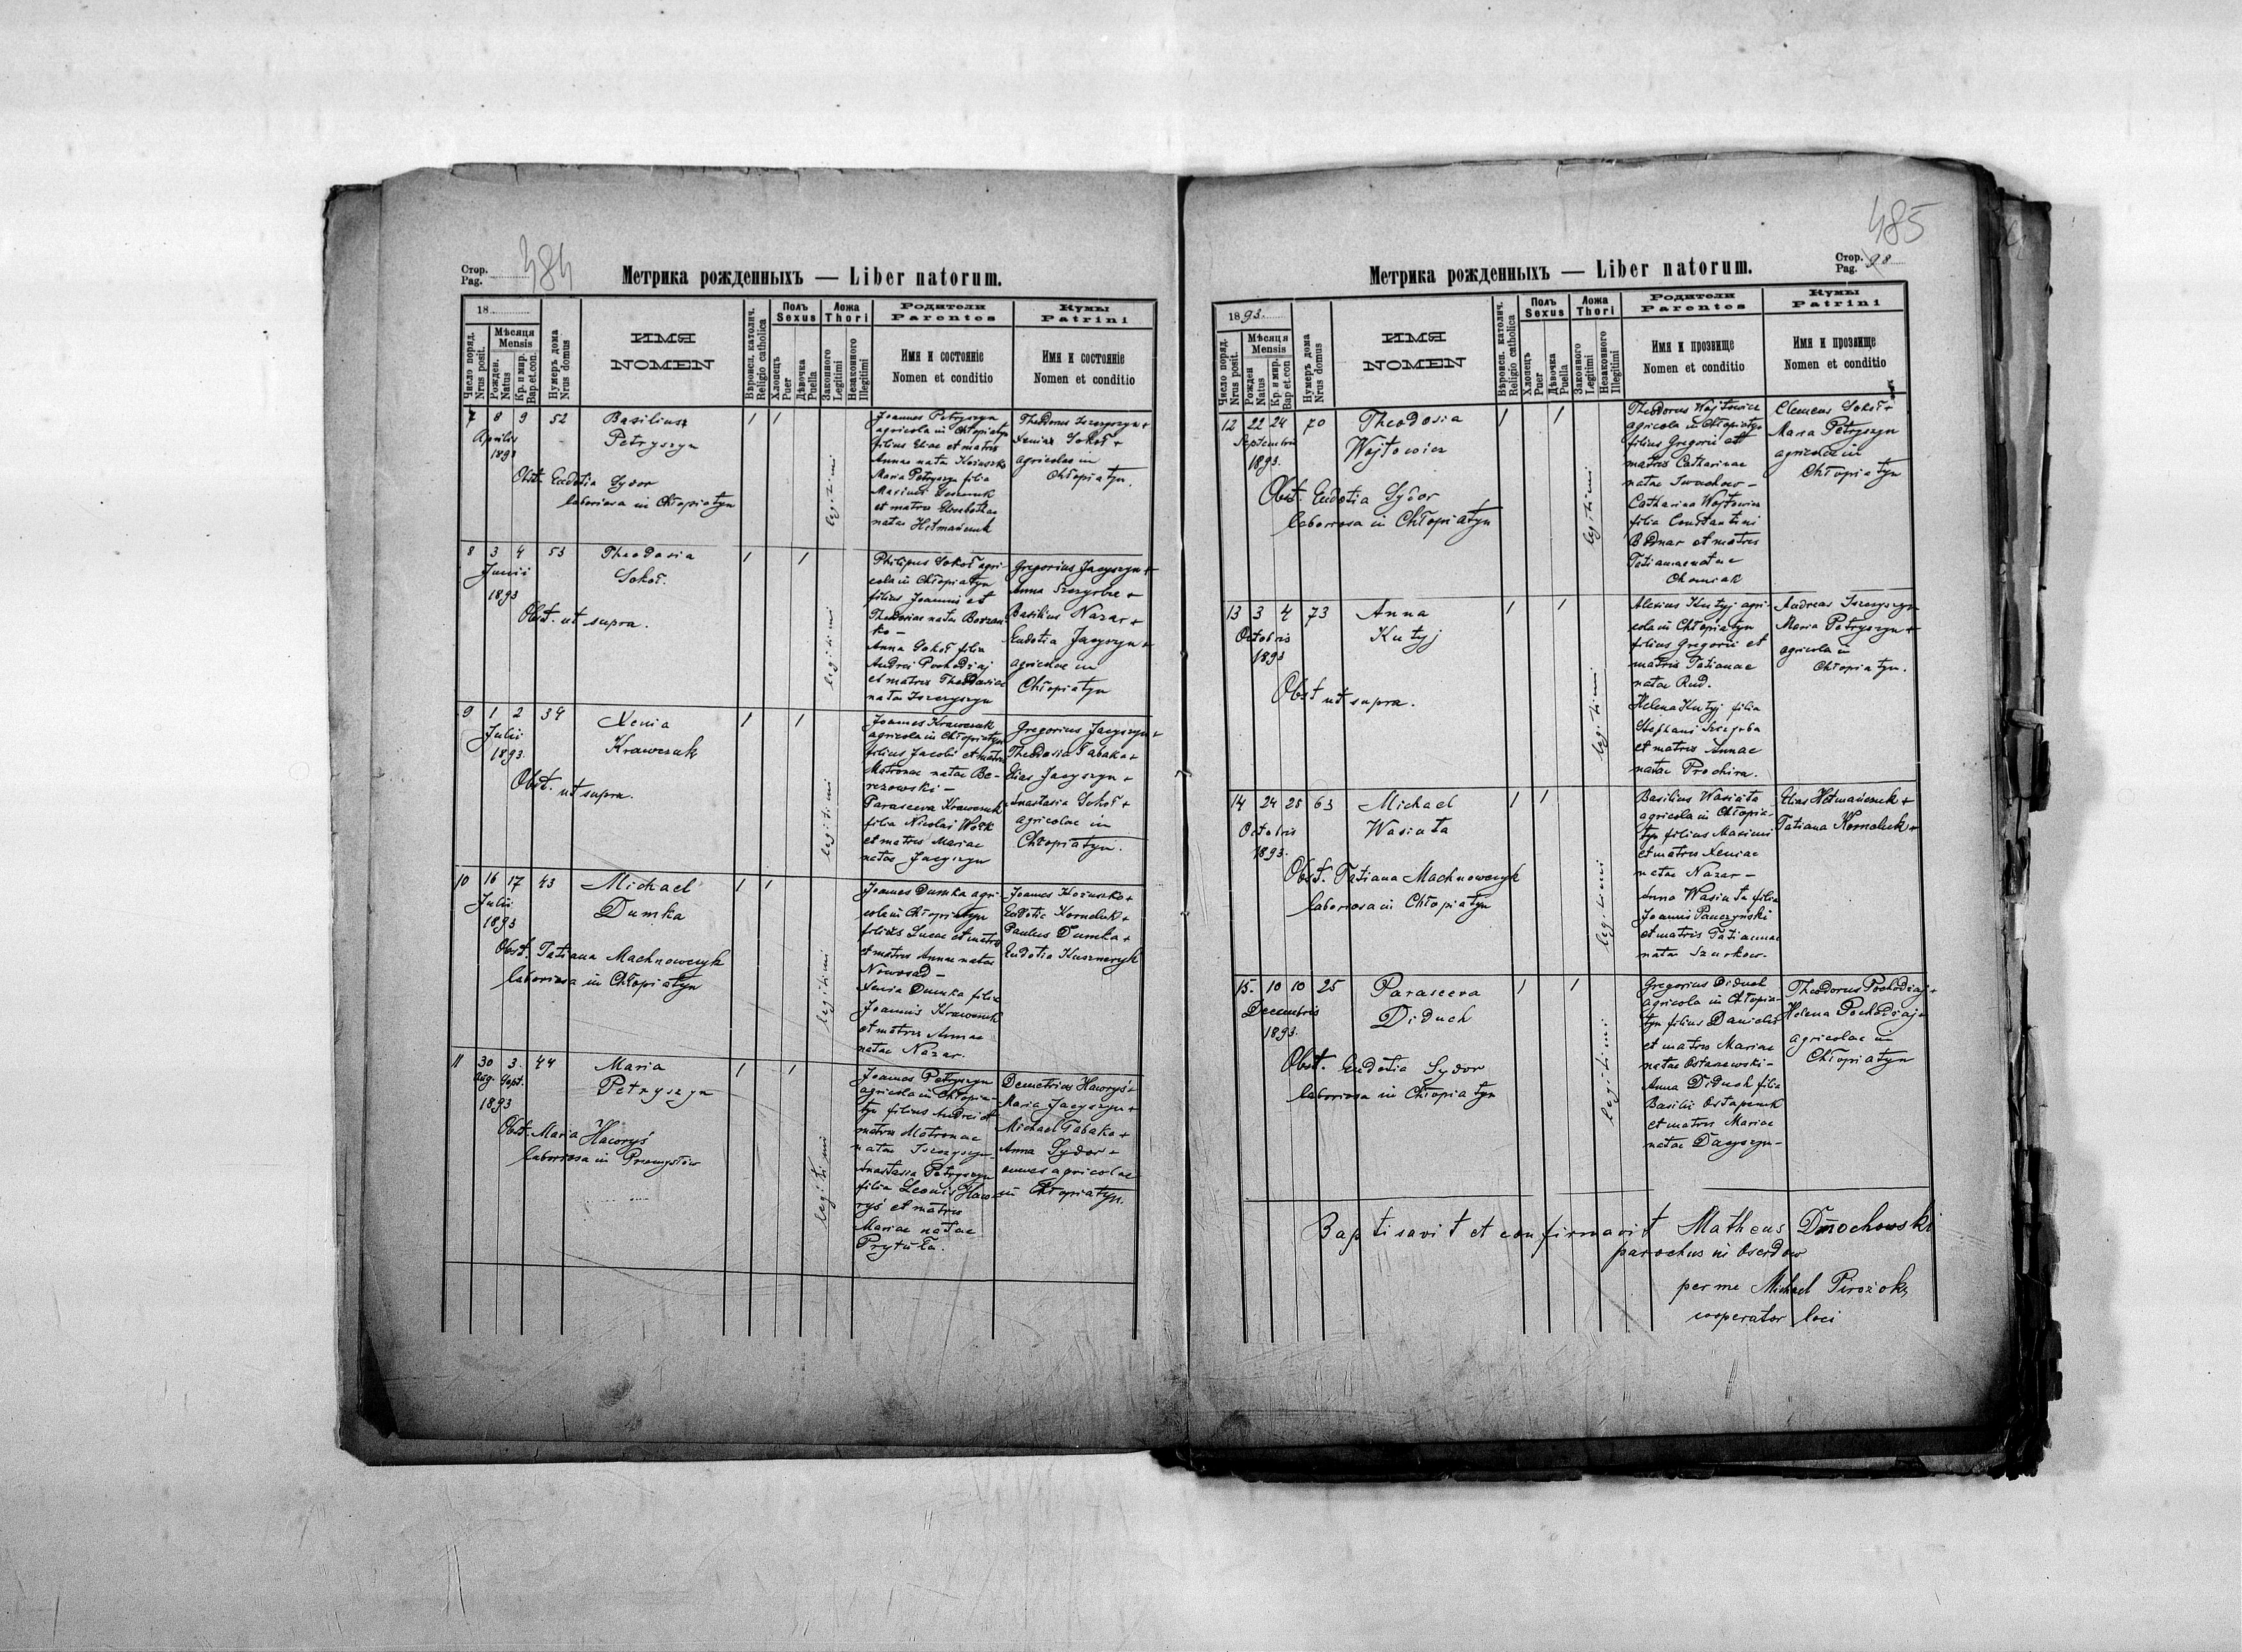 484
Стор.
Pag.
Метрика рожденныхъ — Liber natorum.
18
Число поряд.
Nrus posit.
Мѣсяця
Mensis
Рожден.
Natus
Кр. и мир.
Bap et.con.
Нумеръ дома
Nrus domus
ИМЯ
NOMEN
Вѣроисп. католич.
Religio catholica
Полъ
Sexus
Хлопецъ
Puer
Дѣвочка
Puella
Ложа
Thori
Законного
Legitimi
Незаконного
Illegitimi
Родители
Parentes
Имя и состояніе
Nomen et conditio
Кумы
Patrini
Имя и состояніе
Nomen et conditio
7 8 9 52 Basilius 1 1
Aprilis Petryszyn
1893
Obst. Eudotia Sydor
laboriosa in Chłopiatyn
legitimi
Joannes Petryszyn
agricola in Chłopiatyn
filius Eliae et matris
Annae natae
Maria Petryszyn filia
Maximi
et matris
natae Hetmańczuk
Theodorus Iszczyszyn +
Xenia Sokoł +
agricolae in
Chłopiatyn.
8 3 4 53 Theodosia 1 1
Junii Sokoł.
1893
Obst. ut supra.
legitimi
Philipus Sokoł agri-
cola in Chłopiatyn
filius Joannis et
Theodosiae natae
Anna Sokoł filia
Andrei Pochodziaj
et matris Theodosiae
natae Iszczyszyn
Gregorius Jacyszyn +
Anna Szczyrba +
Basilius Nazar +
Eudotia Jacyszyn +
agricolae in
Chłopiatyn
9 1 2 34 Xenia 1 1
Julii Krawczuk
1893
Obst. ut supra.
legitimi
Joannes Krawczuk
agricola in Chłopiatyn
filius Jacobi et matris
Matronae natae Be-
rezowski —
Parasceva Krawczuk
filia Nicolai Wołk
et matris Mariae
natae Jacyszyn
Gregorius Jacyszyn +
Theodosia Tabaka +
Elias Jacyszyn +
Anastasia Sokoł +
agricolae in
Chłopiatyn.
10 16 17 43 Michael 1 1
Julii Dumka
1893
Obst. Tatiana Machnowczyk
laboriosa in Chłopiatyn
legitimi
Joannes Dumka agri-
cola in Chłopiatyn
filius Lucae et matris
et matris Annae natae
Nowosad —
Xenia Dumka filia
Joannis Krawczuk
et matris Annae
natae Nazar.
Joannes Kożuszko +
Eudotia Korneluk +
Paulus Dumka +
Eudotia Kuszneryk
11 30 3. 44 Maria 1 1
Aug. Sept. Petryszyn
1893
Obst. Maria Haworyś
laboriosa in Przemysłów
legitimi
Joannes Petryszyn
agricola in Chłopia-
tyn filius Andrei et
matris Matronae
natae Iszczyszyn.
Anastasia Petryszyn
filia Leonis Hawo-
ryś et matris
Mariae natae
Prytuła.
Demetrius Haworyś +
Maria Jacyszyn +
Michael Tabaka +
Anna Sydor +
omnes agricolae
in Chłopiatyn.
485
Стор.
Pag. 98
Метрика рожденныхъ — Liber natorum.
1893.
Число поряд.
Nrus posit.
Мѣсяця
Mensis
Рожден
Natus
Кр. и мир.
Bap et.con
Нумеръ дома
Nrus domus
ИМЯ
NOMEN
Вѣроисп. католич.
Religio catholica
Полъ
Sexus
Хлопецъ
Puer
Дѣвочка
Puella
Ложа
Thori
Законного
Legitimi
Незаконного
Illegitimi
Родители
Parentes
Имя и прозвище
Nomen et conditio
Кумы
Patrini
Имя и прозвище
Nomen et conditio
12 22 24 70 Theodosia 1 1
Septembris Wojtowicz
1893.
Obst. Eudotia Sydor
laboriosa in Chłopiatyn
legitimi
Theodorus Wojtowicz
agricola in Chłopiatyn
filius Gregorii et
matris Catharinae
natae Iwachow —
Catharina Wojtowicz
filia Constantini
Bodnar et matris
Tatianae natae
Chomiak
Clemens Sokoł +
Maria Petryszyn
agricolae in
Chłopiatyn
13 3 4 73 Anna 1 1
Octobris Kutyj
1893
Obst ut supra.
legitimi
Alexius Kutyj agri-
cola in Chłopiatyn
filius Gregorii et
matris Tatianae
natae Rud.
Helena Kutyj filia
Stephani Szczyrba
et matris Annae
natae Prochira.
Andreas Iszczyszyn
Maria Petryszyn +
agricola in
Chłopiatyn.
14 24 25 63 Michael 1 1
Octobris Wasiuta
1893.
Obst. Tatiana Machnowczyk
laboriosa in Chłopiatyn
legitimi
Basilius Wasiuta
agricola in Chłopia-
tyn filius Maximi
et matris Xeniae
natae Nazar —
Anna Wasiuta filia
Joannis Panczyński
et matris Tatianae
natae Szurkow.
Elias Hetmańczuk +
Tatiana Korneluk +
15. 10 10 25 Parasceva 1 1
Decembris Diduch
1893.
Obst. Eudotia Sydor
laboriosa in Chłopiatyn
legitimi
Gregorius Diduch
agricola in Chłopia-
tyn filius Danielis
et matris Mariae
natae Ostaszewski —
Anna Diduch filia
Basilii Ostapczuk
et matris Mariae
natae Dacyszyn —
Theodorus Pochodziaj +
Helena Pochodziaj +
agricolae in
Chłopiatyn
Baptisavit et confirmavit Matheus Dmochowski
parochus in Oserdow
per me Michael
cooperator loci